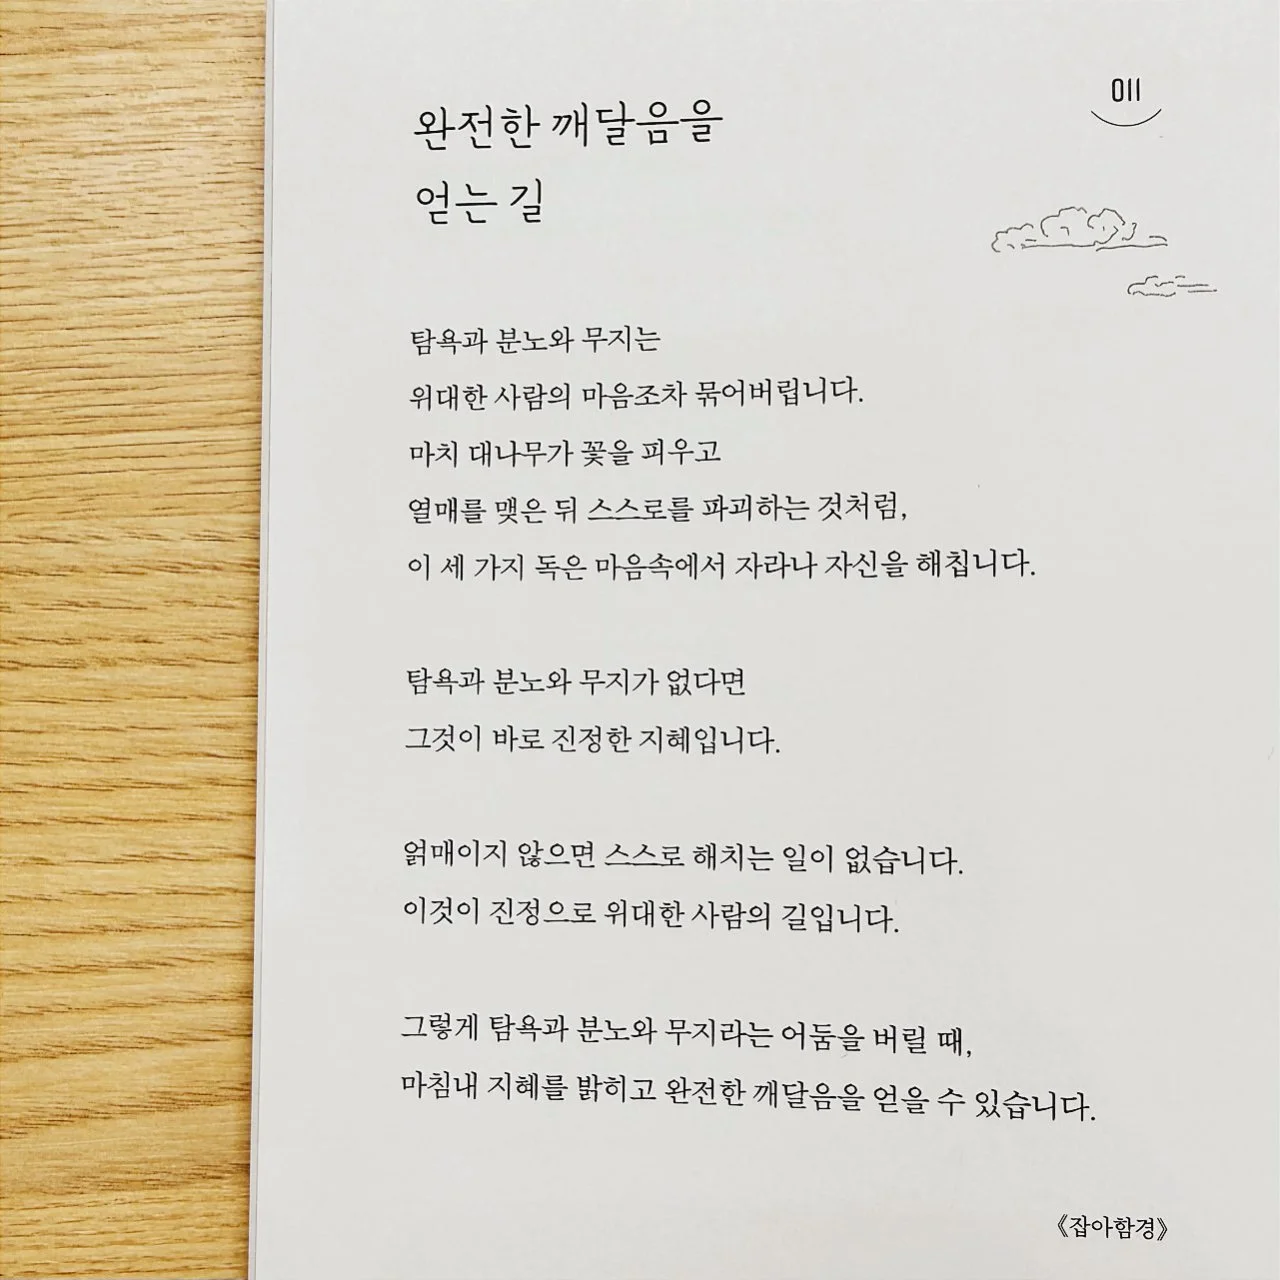 011
완전한 깨달음을
얻는 길
탐욕과 분노와 무지는
위대한 사람의 마음조차 묶어버립니다.
마치 대나무가 꽃을 피우고
열매를 맺은 뒤 스스로를 파괴하는 것처럼,
이 세 가지 독은 마음속에서 자라나 자신을 해칩니다.
탐욕과 분노와 무지가 없다면
그것이 바로 진정한 지혜입니다.
얽매이지 않으면 스스로 해치는 일이 없습니다.
이것이 진정으로 위대한 사람의 길입니다.
그렇게 탐욕과 분노와 무지라는 어둠을 버릴 때,
마침내 지혜를 밝히고 완전한 깨달음을 얻을 수 있습니다.
《잡아함경》